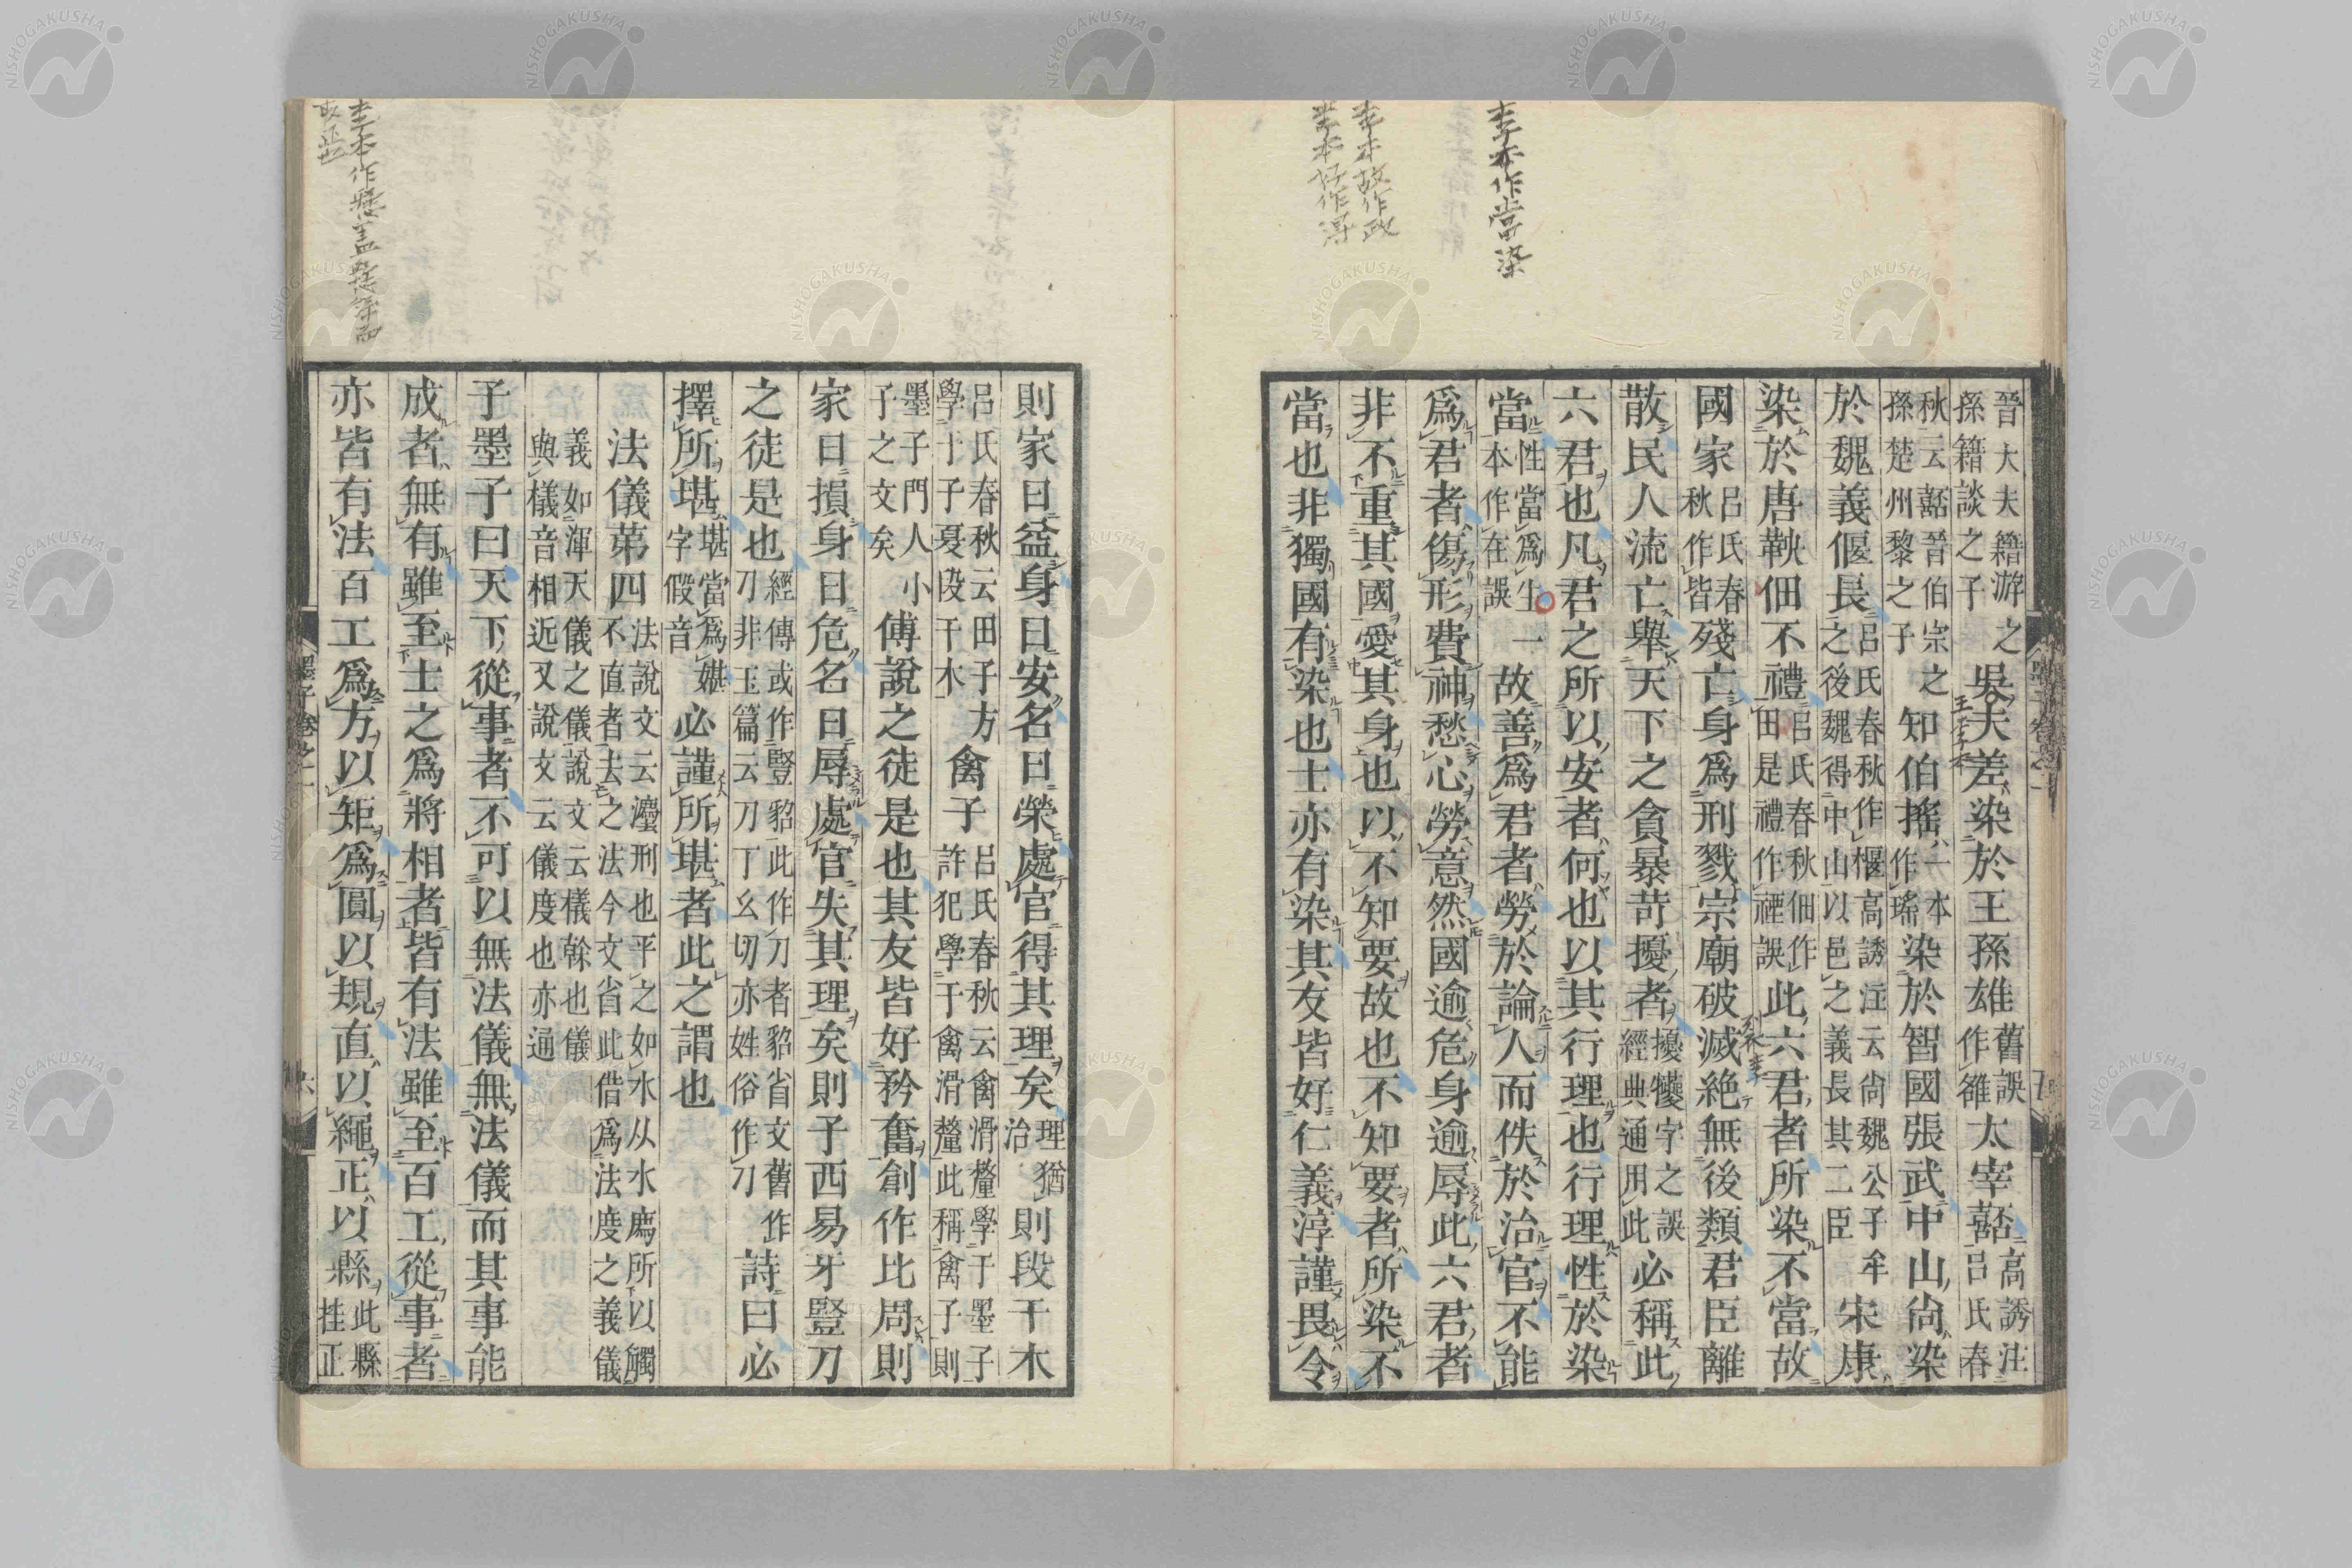 李本作當染
李本故作政
李本好作淳
晉大夫籍游之
孫籍談之子
吳夫差染於王孫雄
舊誤
作雒
太宰嚭
高誘注
呂氏春
秋云嚭晉伯宗之
孫楚州黎之子
知伯搖
一本
作瑤
染於智國張武中山尙染
於魏義偃長
呂氏春秋作椻高誘注云尙魏公子牟
之後魏得中山以邑之義長其二臣
宋康
染於唐鞅佃不禮
呂氏春秋佃作
田是禮作禋誤
此六君者所染不當故
國家
呂氏春
秋作皆
殘亡身爲刑戮宗廟破滅絕無後類君臣離
散民人流亡舉天下之貪暴苛擾者
擾㹛字之誤
經典通用此
必稱此
六君也凡君之所以安者何也以其行理也行理性於染
當
性當爲生一
本作在誤
故善爲君者勞於論人而佚於治官不能
爲君者傷形費神愁心勞意然國逾危身逾辱此六君者
非不重其國愛其身也以不知要故也不知要者所染不
當也非獨國有染也士亦有染其友皆好仁義淳謹畏令
則家日益身日安名日榮處官得其理矣
理猶
治
則段干木
呂氏春秋云田子方
學于子夏段干木
禽子
呂氏春秋云禽滑釐學于墨子
許犯學于禽滑釐此稱禽子則
墨子門人小
子之文矣
傅說之徒是也其友皆好矜奮創作比周則
家日損身日危名日辱處官失其理矣則子西易牙豎刀
之徒是也
經傳或作豎貂此作刀者貂省文舊作
刀非玉篇云刀丁幺切亦姓俗作刁
詩曰必
擇所堪
堪當爲媅
字假音
必謹所堪者此之謂也
法儀第四
法說文云灋刑也平之如水从水廌所以觸
不直者去之法今文省此借爲法度之義儀
義如渾天儀之儀說文云檥榦也儀
與檥音相近又說文云儀度也亦通
子墨子曰天下從事者不可以無法儀無法儀而其事能
成者無有雖至士之爲將相者皆有法雖至百工從事者
亦皆有法百工爲方以矩爲圓以規直以繩正以縣
此縣
挂正
墨子卷之一
六